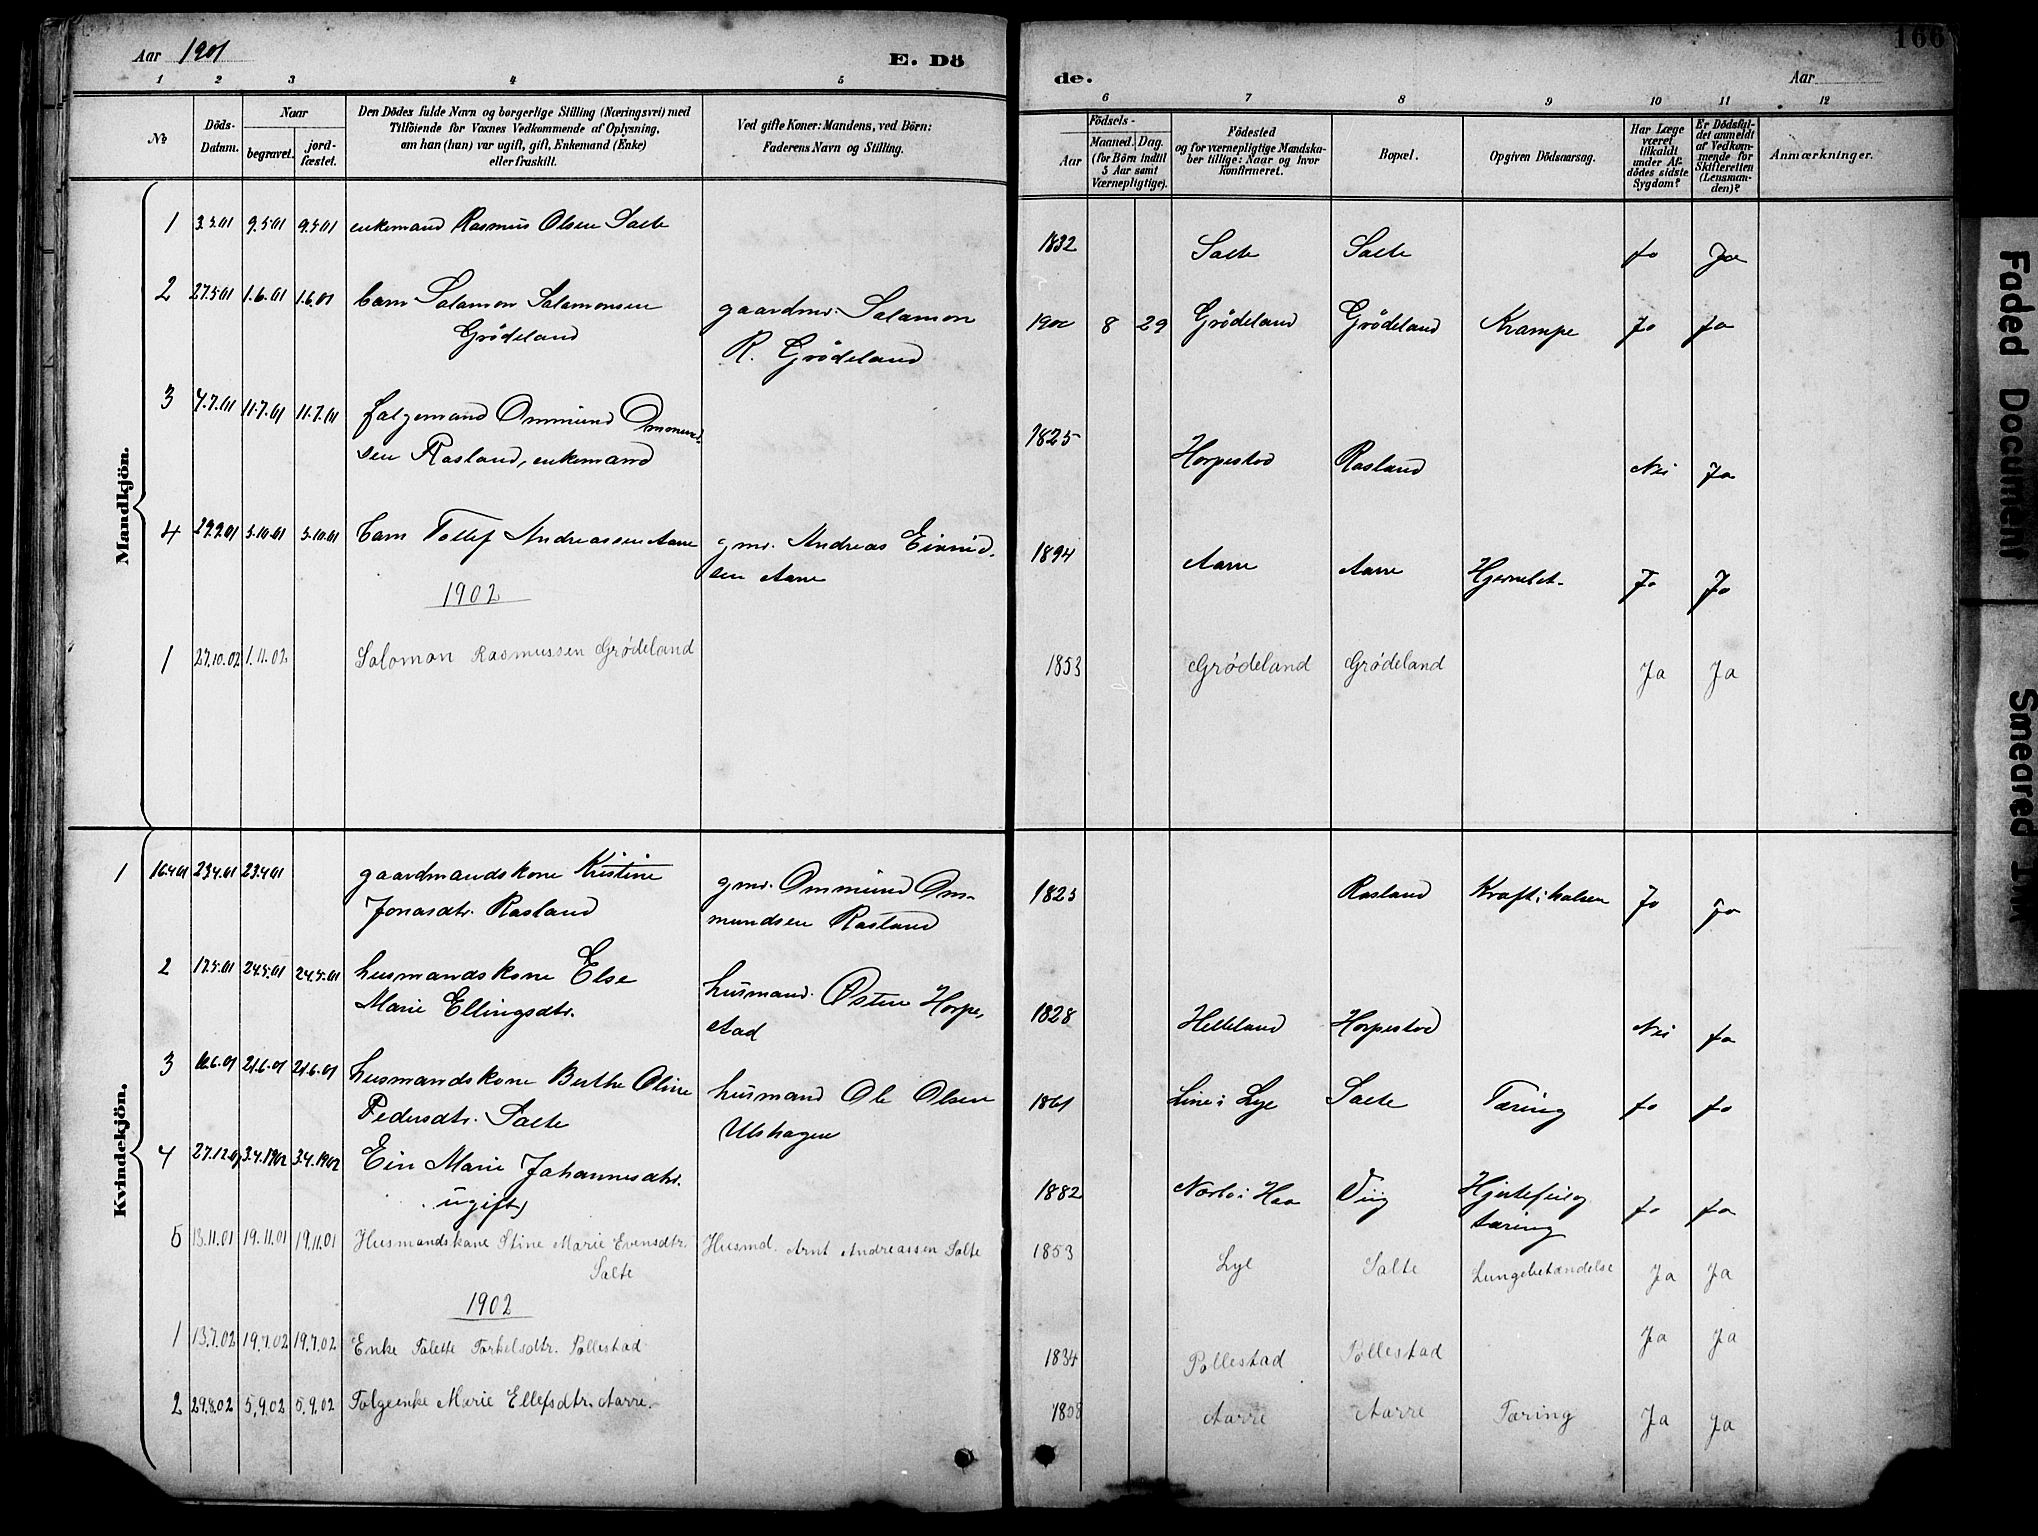 Aar 1901
E. Dö
1 2 3 4 5
№
Döds-Datum.
Naar
begravet.
jord-fæstet.
Den Dödes fulde Navn og borgerlige Stilling (Næringsvei) med
Tilföiende for Voxnes Vedkommende af Oplysning,
om han (hun) var ugift, gift, Enkemand (Enke)
eller fraskilt.
Ved gifte Koner: Mandens, ved Börn:
Faderens Navn og Stilling.
Mandkjön.
1 3.5.01 9.5.01 9.5.01 enkemand Rasmus Olsen Salte
2 27.5.01 1.6.01 1.6.01 barn Salamon Salamonsen
Grödeland
gaardmr. Salamon
R. Grödeland
3 4.7.01 11.7.01 11.7.01 følgemand Ommund Ommund-
sen Rosland, enkemand
4 29.9.01 5.10.01 5.10.01 barn Tollef Andreassen Aarre
gmr. Andreas Eivind-
sen Aarre
1902
1 27.10.02 1.11.02 Salomon Rasmussen Grödeland
Kvindekjön.
1 16.4.01 23.4.01 23.4.01 gaardmandskone Kristine
Jonasdtr. Rosland
gmr. Ommund Om-
mundsen Rosland
2 17.5.01 24.5.01 24.5.01 husmandskone Else
Marie Ellingsdtr.
husmand Østen Horpe-
stad
3 16.6.01 21.6.01 21.6.01 husmandskone Berthe Oline
Pedersdtr. Salte
husmand Ole Olsen
Ulshagen
4 27.12.01 3.4.1902 3.4.1902 Ein Marie Johannesdtr.
ugift
5 13.11.01 19.11.01 19.11.01 Husmandskone Stine Marie Evensdtr.
Salte
Husmd. Arnt Andreassen Salte
1902
1 13.7.02 19.7.02 19.7.02 Enke Talette Torkelsdtr. Pollestad
2 29.8.02 5.9.02 5.9.02 Folgeenke Marie Ellefsdtr. Aarre.
166
de.
Aar
6 7 8 9 10 11 12
Födsels-
Aar
Maaned. Dag.
(for Börn indtil
5 Aar samt
Værnepligtige).
Födested
og for værnepligtige Mandska-
ber tillige: Naar og hvor
konfirmeret.
Bopæl.
Opgiven Dödsaarsag.
Har Læge
været
tilkaldt
under Af-
dödes sidste
Sygdom?
Er Dödsfal-
det anmeldt
af Vedkom-
mende for
Skifteretten
(Lensman-
den)?
Anmærkninger.
1832 Salte Salte Ja Ja
1900 8 29 Grödeland Grödeland Krampe Ja Ja
1825 Horpestad Rosland Nei Ja
1894 Aarre Aarre Ja Ja
1853 Grödeland Grödeland Ja Ja
1825 Rosland Kræft i halsen Ja Ja
1828 Helleland Horpestad Nei Ja
1861 Line i Lye Salte Tæring Ja Ja
1882 Nærbø i Haa Viig Hjertefeil og
tæring
Ja Ja
1853 Lye Salte Lungebetændelse Ja Ja
1834 Pollestad Pollestad Ja Ja
1808 Aarre Aarre Tæring Ja Ja
Faded Document
Smeared Ink